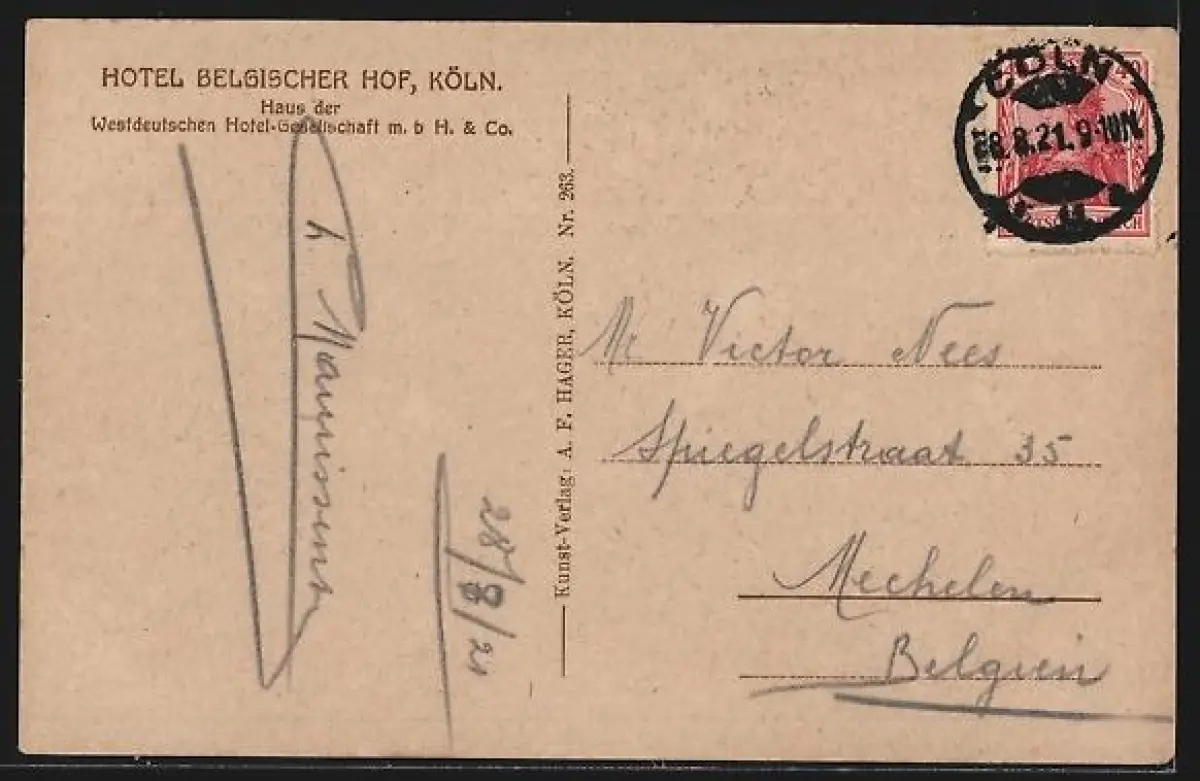 HOTEL BELGISCHER HOF, KÖLN.
Haus der
Westdeutschen Hotel-Gesellschaft m. b H. & Co.
Kunst-Verlag: A. F. HAGER, KÖLN. Nr. 263.
CÖLN
8.21. 9-10N.
Mr Victor Nees
Spiegelstraat 35
Mechelen
Belgien
28/8/21